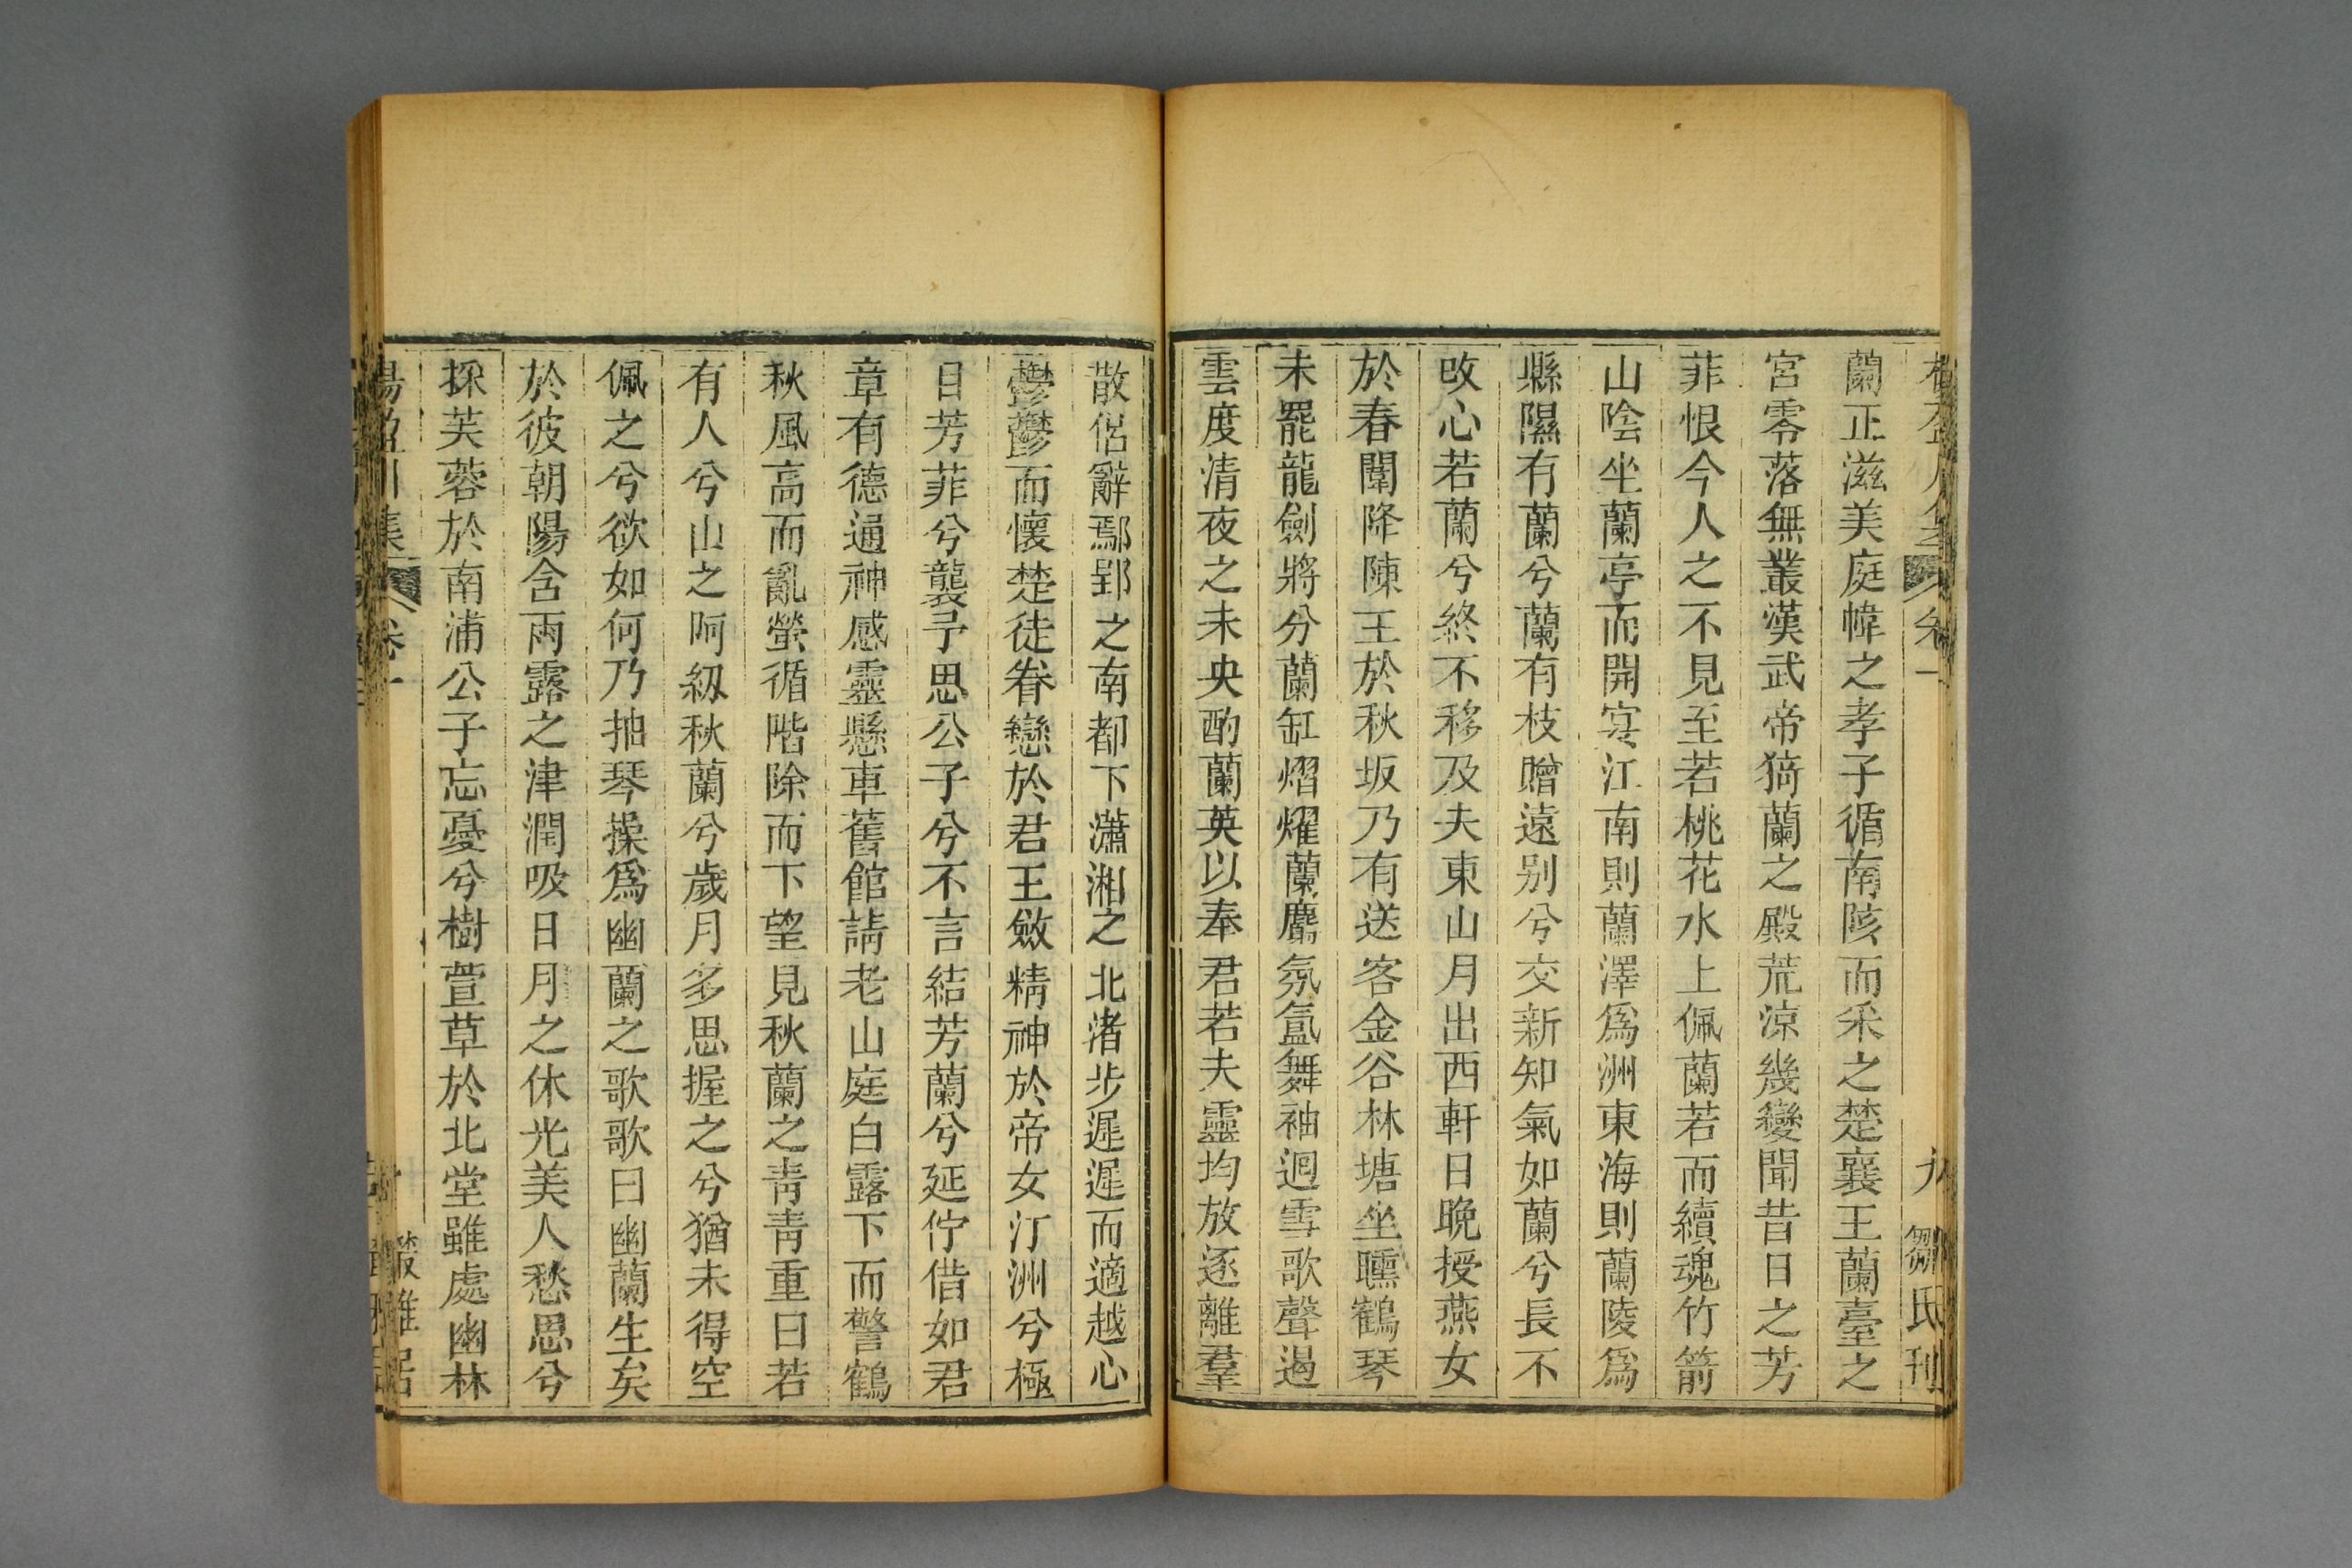 卷一 九 鄒氏刊
蘭正滋美庭幃之孝子循南陔而采之楚襄王蘭臺之
宮零落無叢漢武帝猗蘭之殿荒涼幾變聞昔日之芳
菲恨今人之不見至若桃花水上佩蘭若而續魂竹箭
山陰坐蘭亭而開宴江南則蘭澤爲洲東海則蘭陵爲
縣隰有蘭兮蘭有枝贈遠别兮交新知氣如蘭兮長不
攺心若蘭兮終不移及夫東山月出西軒日晚授燕女
於春閨降陳王於秋坂乃有送客金谷林塘坐曛鶴琴
未罷龍劍將分蘭缸熠燿蘭麝氛氳舞袖迴雪歌聲遏
雲度清夜之未央酌蘭英以奉君若夫靈均放逐離羣
散侶辭鄢郢之南都下瀟湘之北渚步遲遲而適越心
鬱鬱而懷楚徒眷戀於君王斂精神於帝女汀洲兮極
目芳菲兮襲予思公子兮不言結芳蘭兮延佇借如君
章有德通神感靈懸車舊館請老山庭白露下而警鶴
秋風高而亂螢循階除而下望見秋蘭之青青重曰若
有人兮山之阿紉秋蘭兮歲月多思握之兮猶未得空
佩之兮欲如何乃抽琴操爲幽蘭之歌歌曰幽蘭生矣
於彼朝陽含雨露之津潤吸日月之休光美人愁思兮
採芙蓉於南浦公子忘憂兮樹萱草於北堂雖處幽林
楊盈川集 卷一 叢雅居